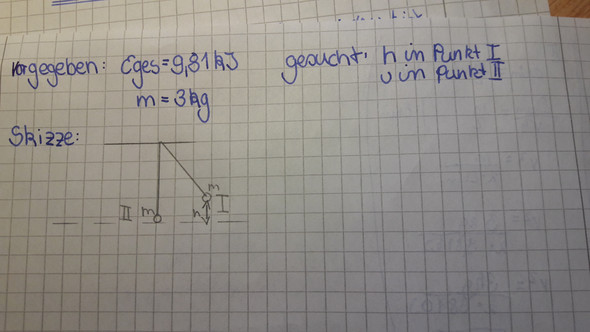 vorgegeben: Eges=9,81kJ gesucht: h in Punkt I
m = 3kg v in Punkt II
Skizze:
m
II m I
h